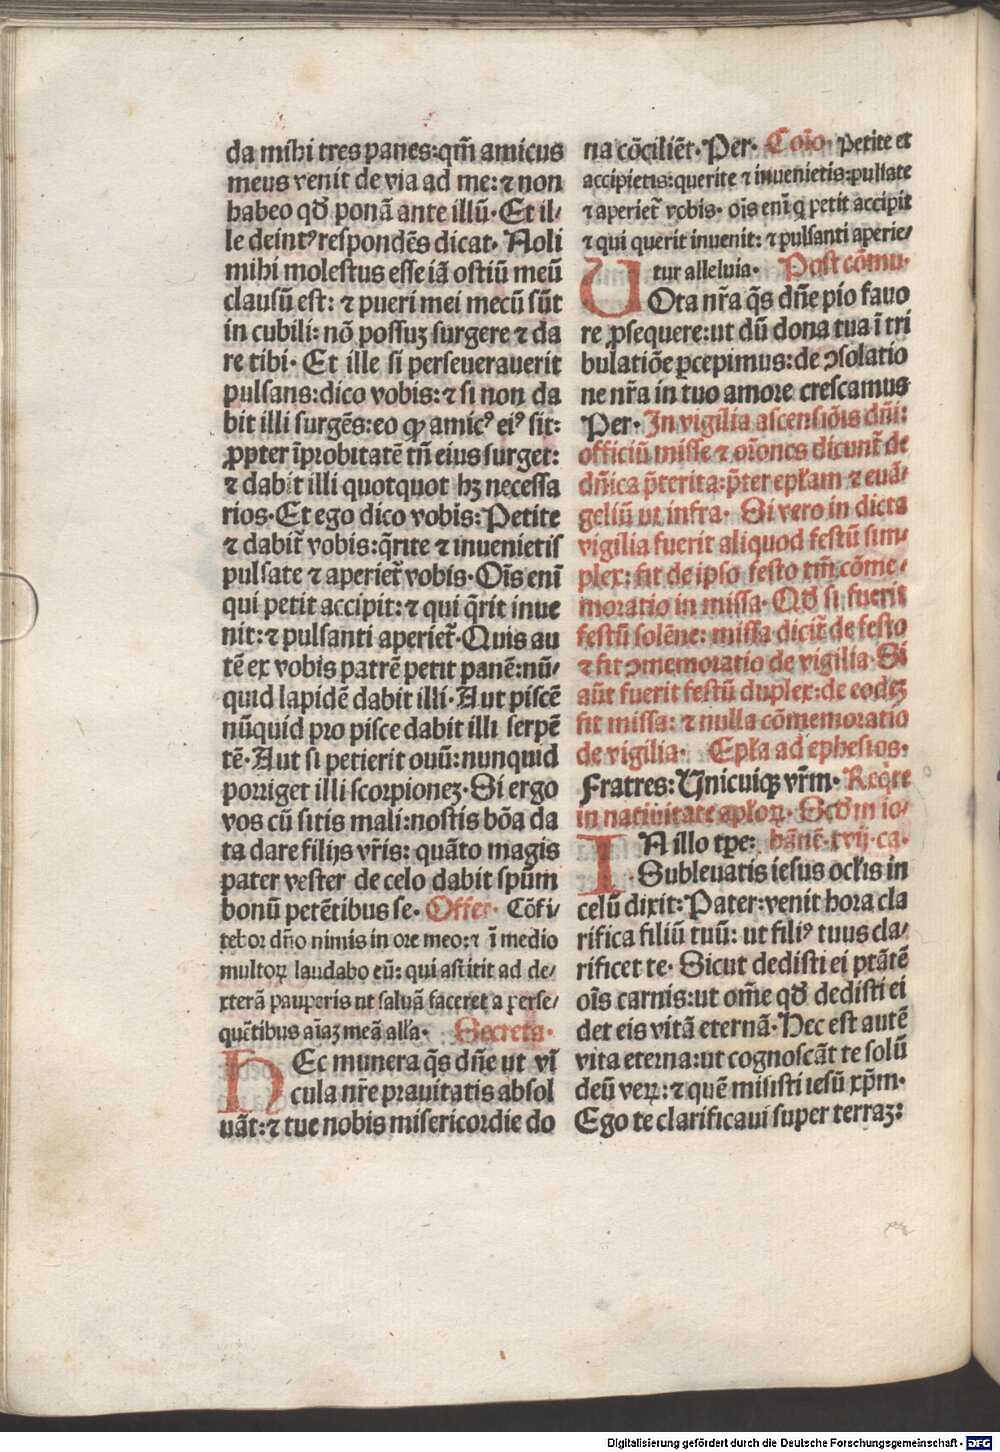 da mihi tres panes:qm̃ amicus
meus venit de via ad me:⁊ non
habeo qd̃ ponã ante illũ·Et il/
le deintꝰ respondẽs dicat· Noli
mihi molestus esse iã ostiũ meũ
clausũ est: ⁊ pueri mei mecũ sũt
in cubili: nõ possuꝫ surgere ⁊ da
re tibi· Et ille si perseuerauerit
pulsans:dico vobis:⁊ si non da
bit illi surgẽs:eo ꝙ amicꝰ eiꝰ sit:
ꝓpter ĩprobitatẽ tñ eius surget:
⁊ dabit illi quotquot hꝫ necessa
rios·Et ego dico vobis:Petite
⁊ dabit̃ vobis:q̃rite ⁊ inuenietis
pulsate ⁊ aperiet̃ vobis·Oĩs enĩ
qui petit accipit:⁊ qui q̃rit inue
nit:⁊ pulsanti aperiet̃·Quis au
tẽ ex vobis patrẽ petit panẽ:nũ/
quid lapidẽ dabit illi·Aut piscẽ
nũquid pro pisce dabit illi serpẽ
tẽ·Aut si petierit ouũ:nunquid
porriget illi scorpioneꝫ·Si ergo
vos cũ sitis mali:nostis bõa da
ta dare filijs vr̃is: quãto magis
pater vester de celo dabit spũm
bonũ petẽtibus se· Offer· Cõfi/
tebor dño nimis in ore meo:⁊ ĩ medio
multoꝝ laudabo eũ: qui astitit ad de/
xterã pauperis ut saluã faceret a perse/
quẽtibus aĩaꝫ meã alľa· Secreta·
HEc munera q̃s dñe ut vĩ
cula nr̃e prauitatis absol
uãt:⁊ tue nobis misericordie do
na cõciliẽt·Per· Coĩo· Petite et
accipietis:querite ⁊ inuenietis:pulsate
⁊ aperiet̃ vobis· oĩs enĩ q petit accipit
⁊ qui querit inuenit: ⁊ pulsanti aperie/
tur alleluia· Post cõmu·
VOta nr̃a q̃s dñe pio fauo
re ꝓsequere:ut dũ dona tua ĩ tri
bulatiõe ꝑcepimus:de ꝯsolatio
ne nr̃a in tuo amore crescamus
Per· In vigilia ascensiõis dñi:
officiũ misse ⁊ orõnes dicunt̃ de
dñica p̃terita:p̃ter epľam ⁊ euã/
geliũ ut infra· Si vero in dicta
vigilia fuerit aliquod festũ sim/
plex: fit de ipso festo tm̃ cõme/
moratio in missa· Qd̃ si fuerit
festũ solẽne: missa dicit̃ de festo
⁊ fit ꝯmemoratio de vigilia·Si
aũt fuerit festũ duplex:de eodeꝫ
fit missa: ⁊ nulla cõmemoratio
de vigilia· Epľa ad ephesios·
Fratres: Unicuiqꝫ vr̃m· Req̃re
in natiuitate apľoꝝ· Scd̃m io/
hãnẽ·xvij·ca·
IN illo tꝑe:
Subleuatis iesus ocľis in
celũ dixit: Pater:venit hora cla
rifica filiũ tuũ: ut filiꝰ tuus cla/
rificet te· Sicut dedisti ei ptãtẽ
oĩs carnis:ut om̃e qd̃ dedisti ei
det eis vitã eternã·Hec est autẽ
vita eterna:ut cognoscãt te solũ
deũ veꝝ:⁊ quẽ misisti iesũ xp̃m·
Ego te clarificaui super terraꝫ:
Digitalisierung gefördert durch die Deutsche Forschungsgemeinschaft - DFG